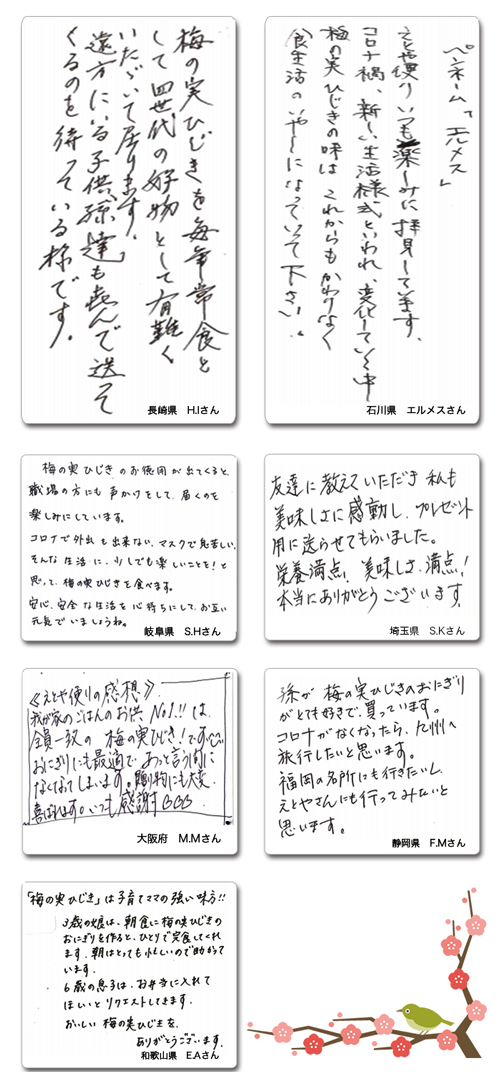 梅の実ひじきを毎年常食と
して四世代の好物として有難く
いただいて居ります。
遠方にいる子供孫達も喜んで送って
くるのを待っている様です。
長崎県　H.Iさん
ペンネーム「エルメス」
えとや便りいつも楽しみに拝見しています。
コロナ禍、新しい生活様式といわれ、変化していく中
梅の実ひじきの味は これからもかわりなく
食生活のいやしになっていて下さい。
石川県　エルメスさん
梅の実ひじきのお徳用が出てくると、
職場の方にも 声かけをして、届くのを
楽しみにしています。
コロナで外出も出来ない、マスクで息苦しい、
そんな生活に、少しでも楽しいことを！と
思って、梅の実ひじきを食べます。
安心、安全な生活を心待ちにして、お互い
元気でいましょうね。
岐阜県　S.Hさん
友達に教えていただき 私も
美味しさに感動し、プレゼント
用に送らせてもらいました。
栄養満点！ 美味しさ、満点！
本当にありがとうございます。
埼玉県　S.Kさん
《えとや便りの感想》
我が家のごはんのお供 No1.!! は、
全員一致の 梅の実ひじき！です
おにぎりにも最適で、あっと言う間に
なくなてしまいます。贈り物にも大変
喜ばれます。いつも感謝
大阪府　M.Mさん
孫が 梅の実ひじきのおにぎり
がとても好きで、買っています。
コロナがなくなったら、九州へ
旅行したいと思います。
福岡の名所にも行きたいし、
えとやさんにも行ってみたいと
思います。
静岡県　F.Mさん
「梅の実ひじき」は子育てママの強い味方!!
3歳の娘は、朝食に梅の実ひじきの
おにぎりを作ると、ひとりで完食してくれ
ます。朝はとっても忙しいので助かって
います。
6歳の息子は、お弁当に入れて
ほしいと リクエストしてきます。
おいしい 梅の実ひじきを、
ありがとうございます。
和歌山県　E.Aさん